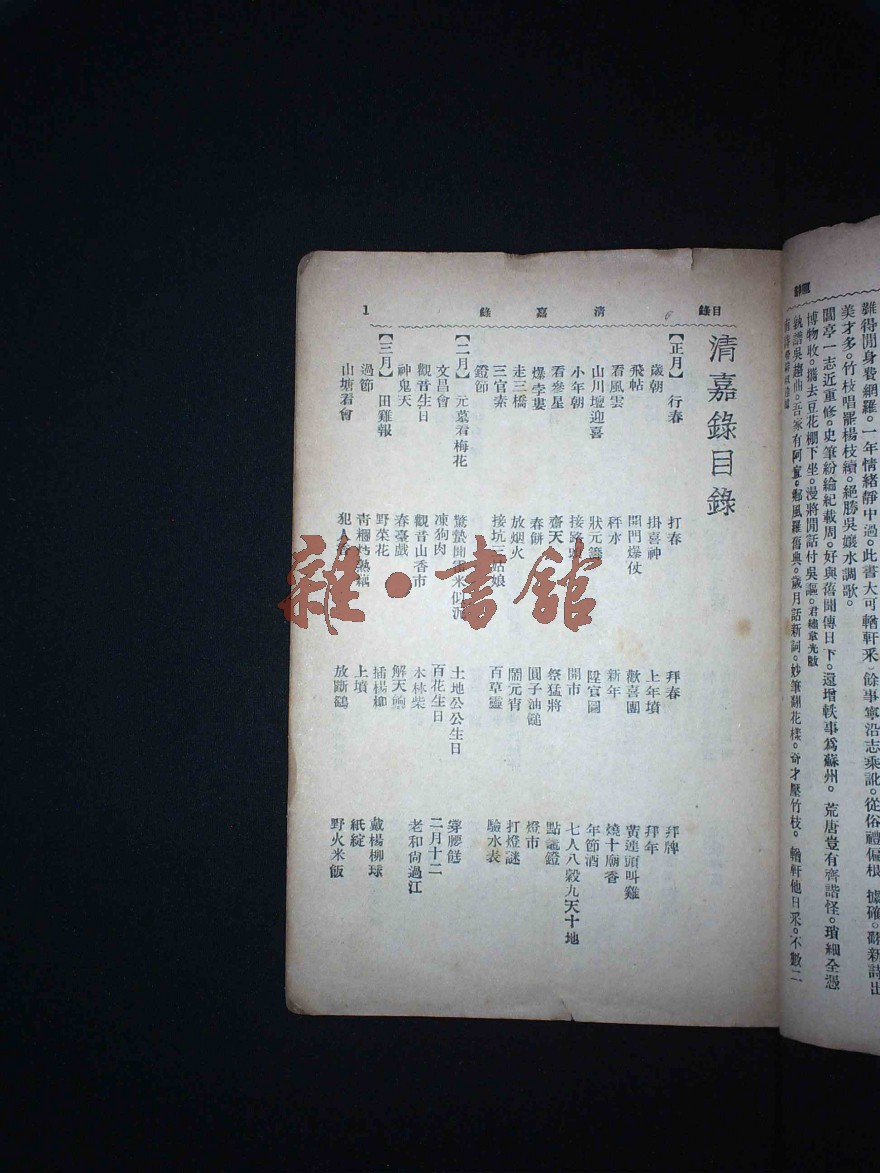 雖得閒身費網羅。一年情緒靜中過。此書大可輶軒采）餘事寧沿志乘訛。從俗禮偏根 據確。翻新詩出
美才多。竹枝唱罷楊枝續。絕勝吳孃水調歌。
閶亭一志近重修。史筆紛綸紀載周。好與舊聞傳日下。還增軼事爲蘇州。荒唐豈有齊諧怪。瑣細全憑
博物收。攜去豆花棚下坐。漫將閒話付吳謳。君繡韋光黻
執譜吳趨曲。吾家有阿宣。鄉風羅舊典。歲月話新詞。妙筆翻花樣。奇才壓竹枝。輶軒他日采。不數二
目錄 清嘉錄 1
清嘉錄目錄
【正月】 行春 打春 拜春 拜牌
歲朝 掛喜神 上年墳 拜年
飛帖 開門爆仗 歡喜團 黃連頭叫雞
看風雲 秤水 新年 燒十廟香
山川壇迎喜 狀元籌 陞官圖 年節酒
小年朝 接路頭 開市 七人八穀九天十地
看參星 齋天 祭猛將 點龍鐙
爆孛婁 春餅 圓子油鎚 燈市
走三橋 放烟火 鬧元宵 打燈謎
三官素 接坑三姑娘 百草靈 驗水表
鐙節
【二月】 元墓看梅花 驚蟄聞雷米似泥 土地公公生日 撐腰餻
文昌會 凍狗肉 百花生日 二月十二
觀音生日 觀音山香市 木柴 老和尚過江
神鬼天 春臺戲 解天餉
【三月】 田雞報 野菜花 插楊柳 戴楊柳球
過節 青糰焐熟藕 上墳 紙綻
山塘看會 犯人香 放斷鷂 野火米飯
雜·書館